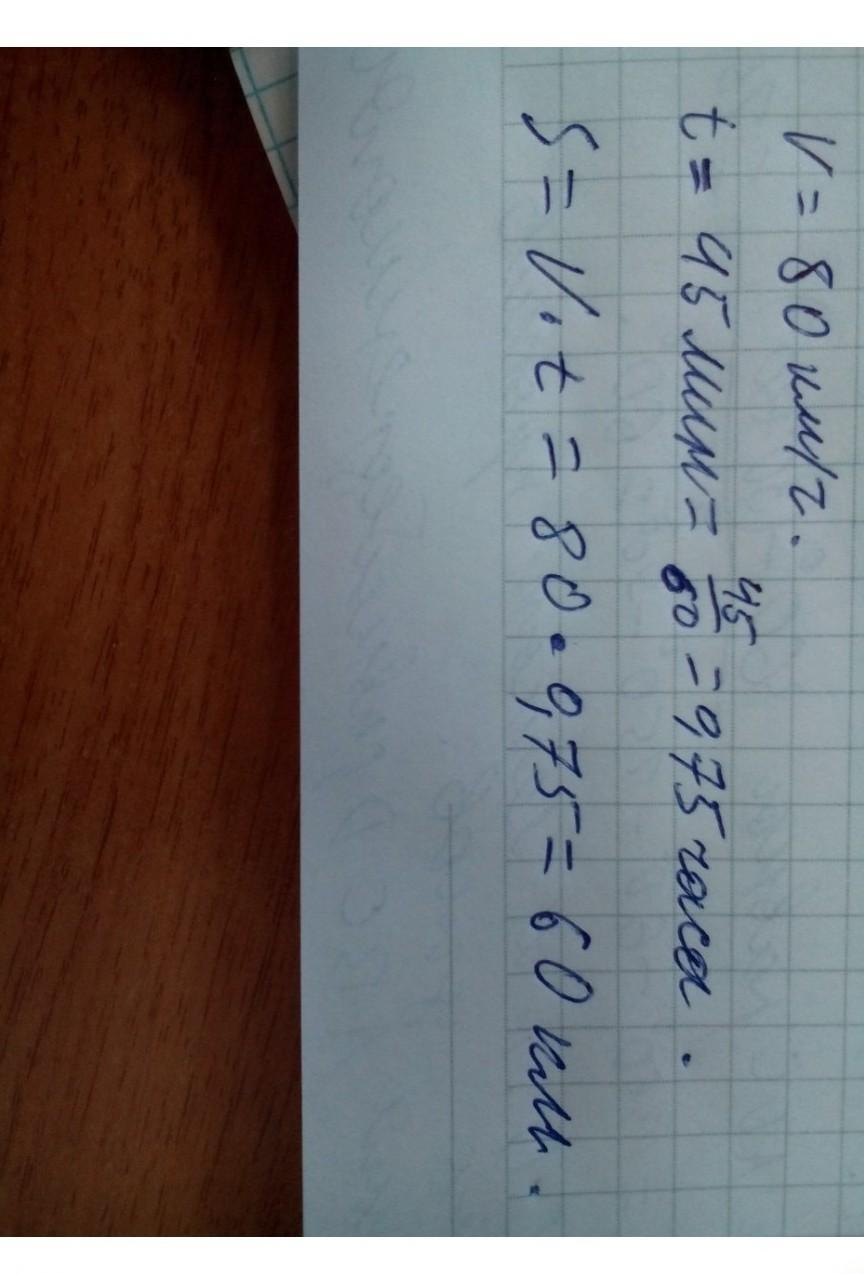 V = 80 км/ч.
t = 45 мин = 45/60 = 0,75 часа.
S = V · t = 80 · 0,75 = 60 км.